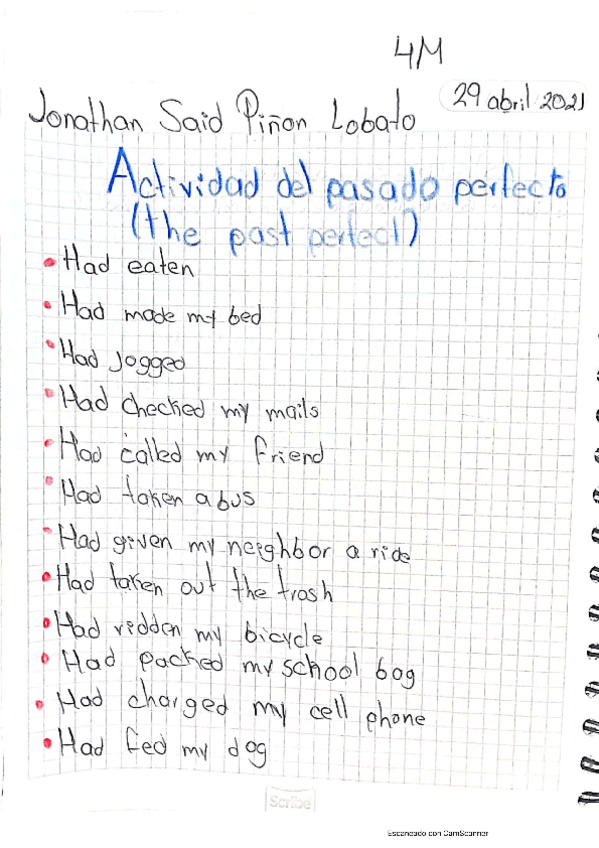 4M
29 abril 2021
Jonathan Said Piñon Lobato
Actividad del pasado perfecto
(the past perfect)
Had eaten
Had made my bed
Had jogged
Had checked my mails
Had called my friend
Had taken a bus
Had given my neighbor a ride
Had taken out the trash
Had ridden my bicycle
Had packed my school bag
Had charged my cell phone
Had fed my dog
Scribe
Escaneado con CamScanner